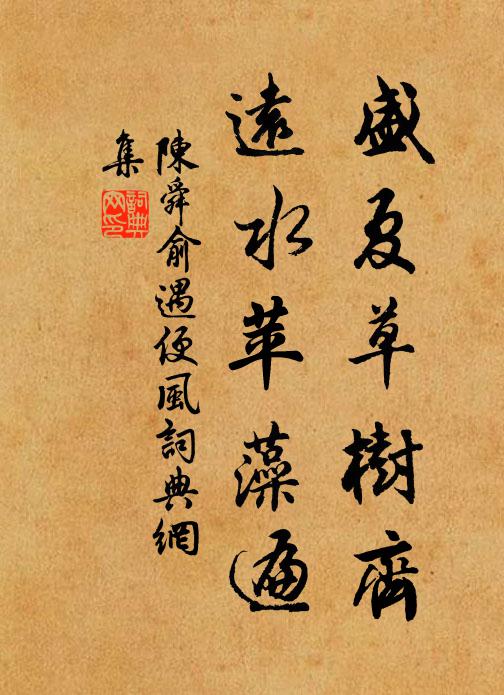 盛夏草樹齊
遠水苹藻遍
陳舜俞遇便風詞典網
集
詞典
网印